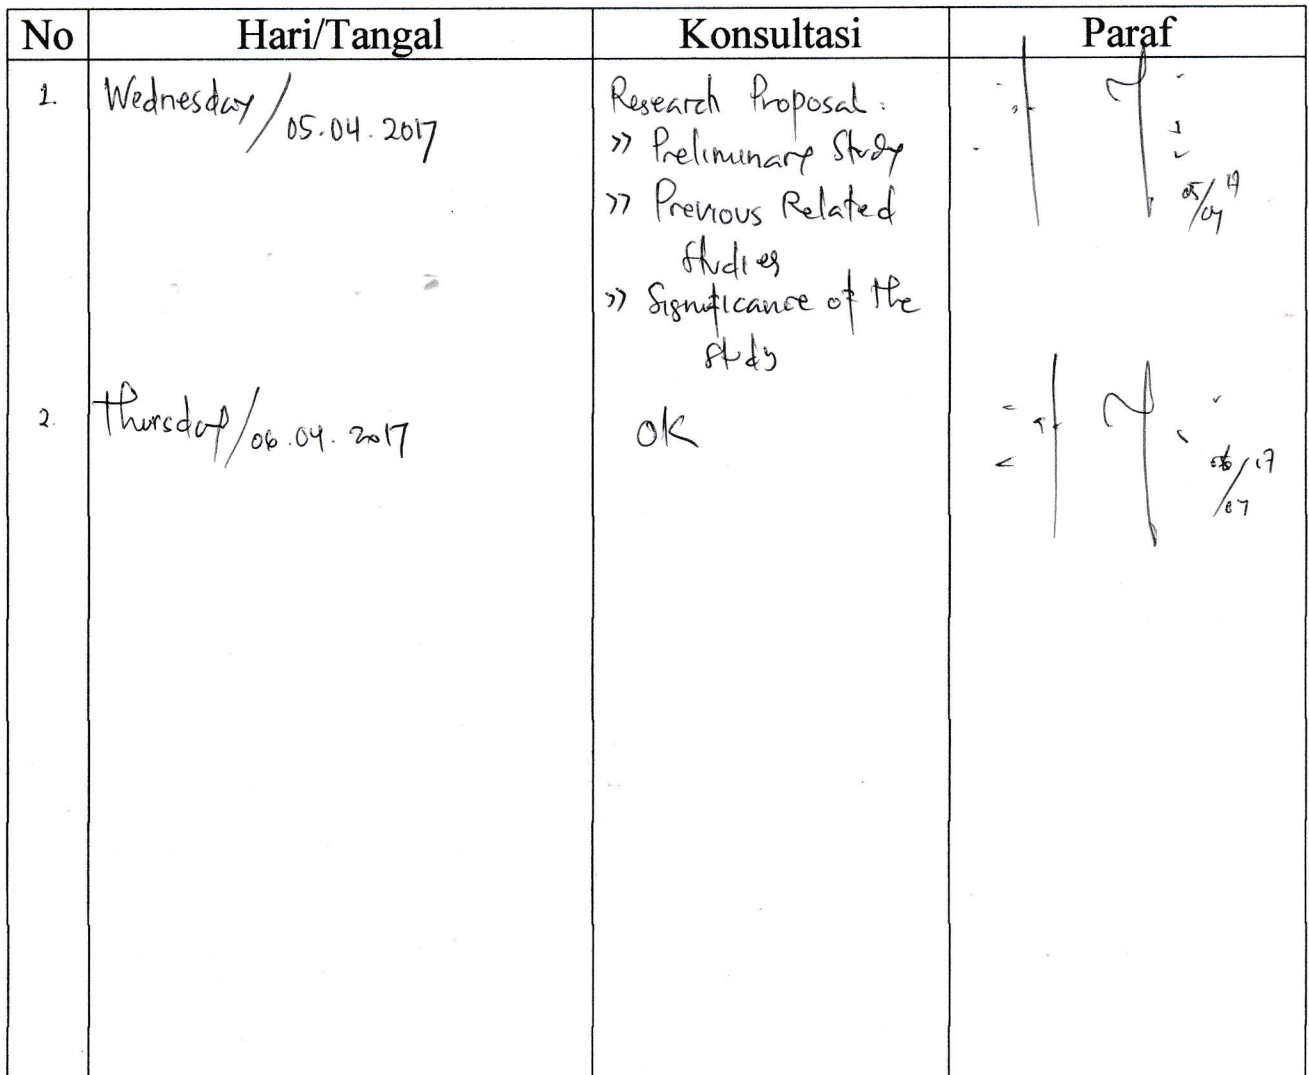 No Hari/Tangal Konsultasi Paraf
1. Wednesday / 05.04.2017 Research Proposal :
>> Preliminary Study
>> Previous Related
Studies
>> Significance of the
study
05/04 17
2. Thursday / 06.04.2017 OK
06/04 17